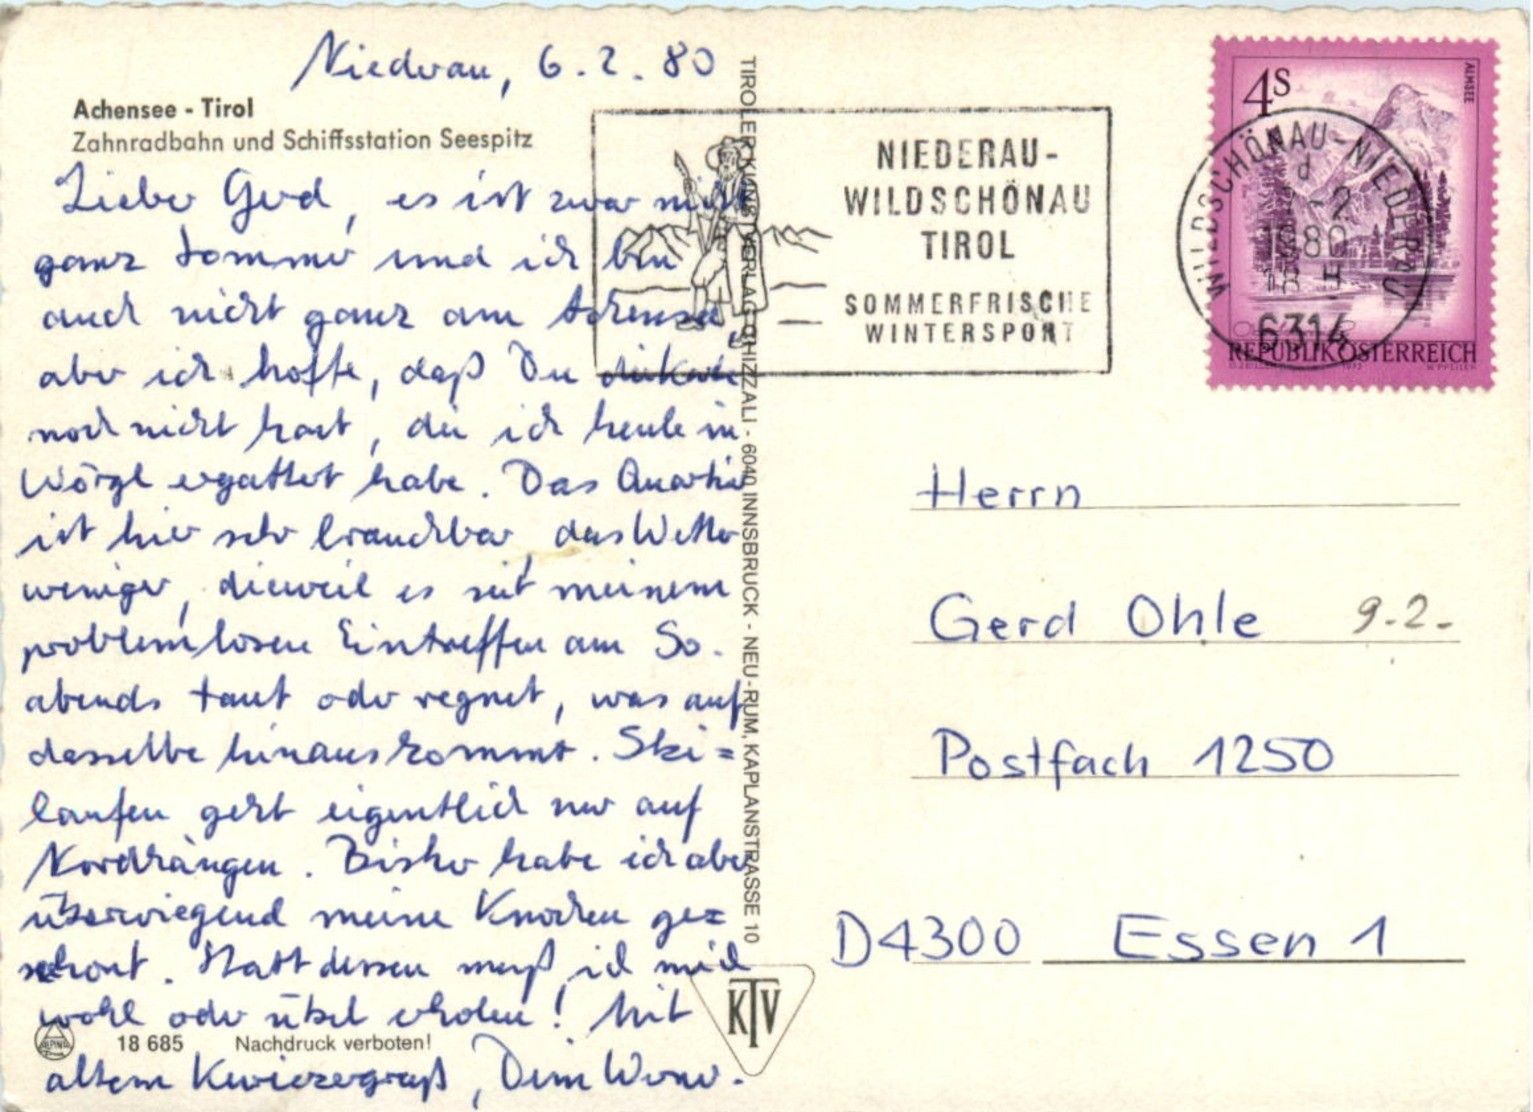 Niederau, 6.2.80
Achensee - Tirol
Zahnradbahn und Schiffsstation Seespitz
Lieber Gerd, es ist zwar nicht
ganz Sommer und ich bin
auch nicht ganz am Achensee,
aber ich hoffe, daß Du die Karte
noch nicht hast, die ich heute in
Wörgl ergattert habe. Das Quartier
ist hier sehr brauchbar, das Wetter
weniger, dieweil es seit meinem
problemlosen Eintreffen am So.
abends taut oder regnet, was auf
dasselbe hinauskommt. Ski=
laufen geht eigentlich nur auf
Nordhängen. Bisher habe ich aber
überwiegend meine Knochen ge=
schont. Statt dessen muß ich mich
wohl oder übel erholen! Mit
altem Kwiezegruß, Dein Werner.
ALPINA
18 685 Nachdruck verboten!
TIROLER KUNSTVERLAG CHIZZALI - 6040 INNSBRUCK - NEU-RUM, KAPLANSTRASSE 10
KTV
NIEDERAU-
WILDSCHÖNAU
TIROL
SOMMERFRISCHE
WINTERSPORT
4S
ALMSEE
REPUBLIK ÖSTERREICH
WILDSCHÖNAU-NIEDERAU
d
-2
80
6314
Herrn
Gerd Ohle 9.2.
Postfach 1250
D4300 Essen 1